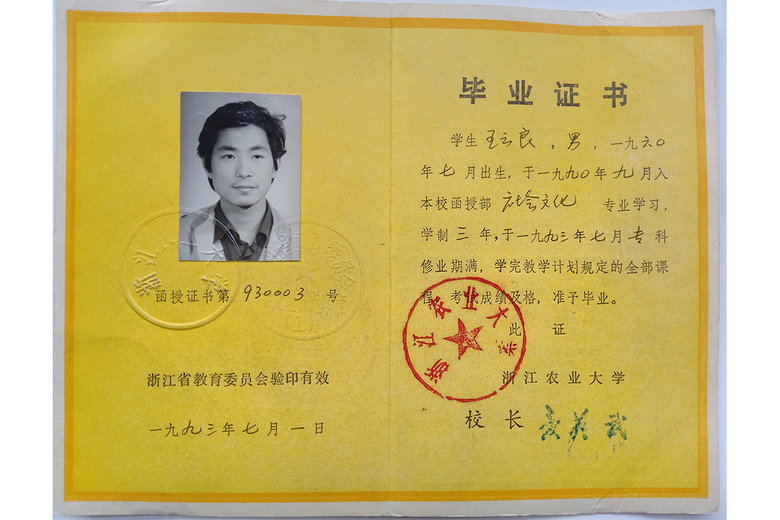 函授证书第 930003 号
浙江省教育委员会验印有效
一九九三年七月一日
毕业证书
学生 王云良，男，一九六〇
年七月出生，于一九九〇年九月入
本校函授部 社会文化 专业学习，
学制三年，于一九九三年七月专科
修业期满，学完教学计划规定的全部课
程，考试成绩及格，准予毕业。
此证
浙江农业大学
浙江农业大学
校长